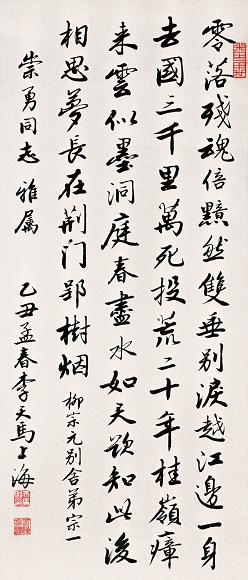 零落残魂倍黯然雙垂别淚越江邊一身
去國三千里萬死投荒二十年桂嶺瘴
来雲似墨洞庭春盡水如天欲知此後
相思夢長在荆门郢樹烟 柳宗元别舍弟宗一
崇勇同志 雅属 乙丑孟春李天馬上海